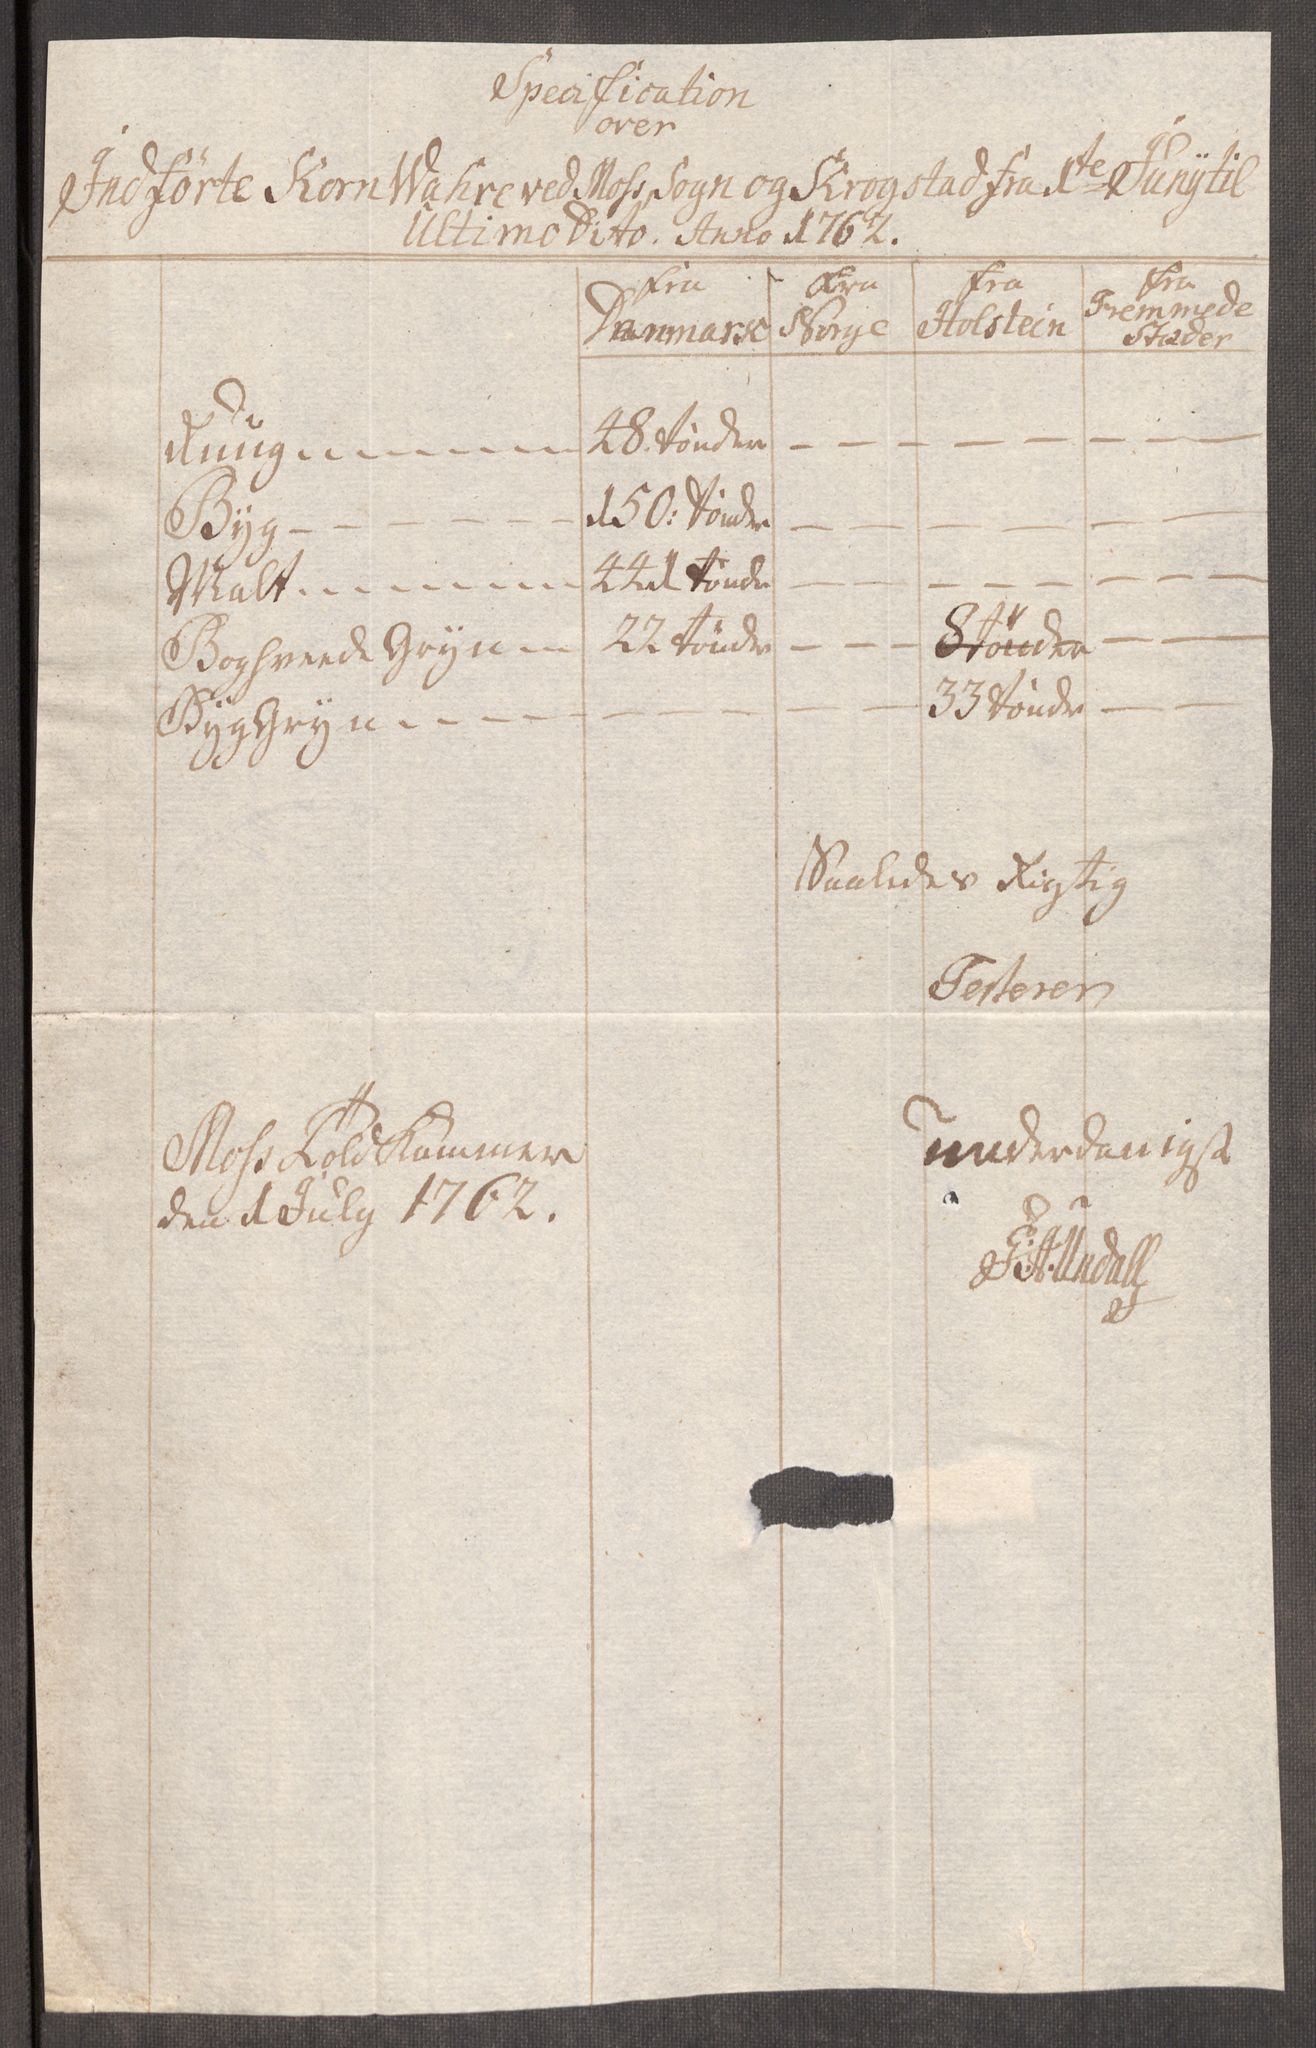 Specification
over
Indførte Korn Wahre ved Moss Sogn og Krogstad fra 1te Juny til
Ultimo Dito. Anno 1762.
fra Danmark fra Norge fra Holstein fra Fremmede Stæder
Ruug 48. tønder — — — — — — —
Byg — — — — — — 150: tønder — — — — — — —
Malt 441 tønder — — — — — — —
Boghveede Gryn 22 tønder — — — 8 tønder — —
Byg Gryn — — — — — — 33 tønder — —
Saaledes Rigtig
Testerer
Moss Told Kammer
den 1 July 1762.
underdanigst